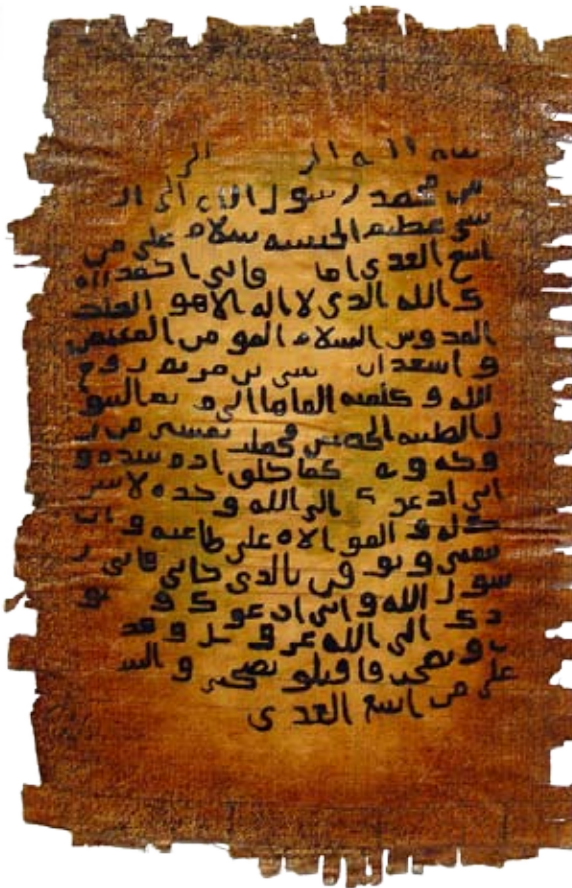 بسم الله الر الر
من محمد رسول الله الى ال
شى عظيم الحبشه سلام على من
اتبع الهدى اما فانى احمد الي
ك الله الذى لا اله الا هو الملك
القدوس السلام المومن المهيمن
و اشهد ان سى بن مريم روح
الله و كلمته القاها الى م يم البتو
ل الطيبه الحصينه فحملت بعيسى من ر
وحه و ه كما خلق ادم بيده و
انى ادعو ك الى الله وحده لا شر
ك له و الموالاه على طاعته و ان
تتبعنى و تو من بالذى جانى فانى ر
سول الله و انى ادعو ك و نو
د ك الى الله عز و جل و قد
ب و نصحت فاقبلو نصيحتى و الس
على من اتبع الهدى